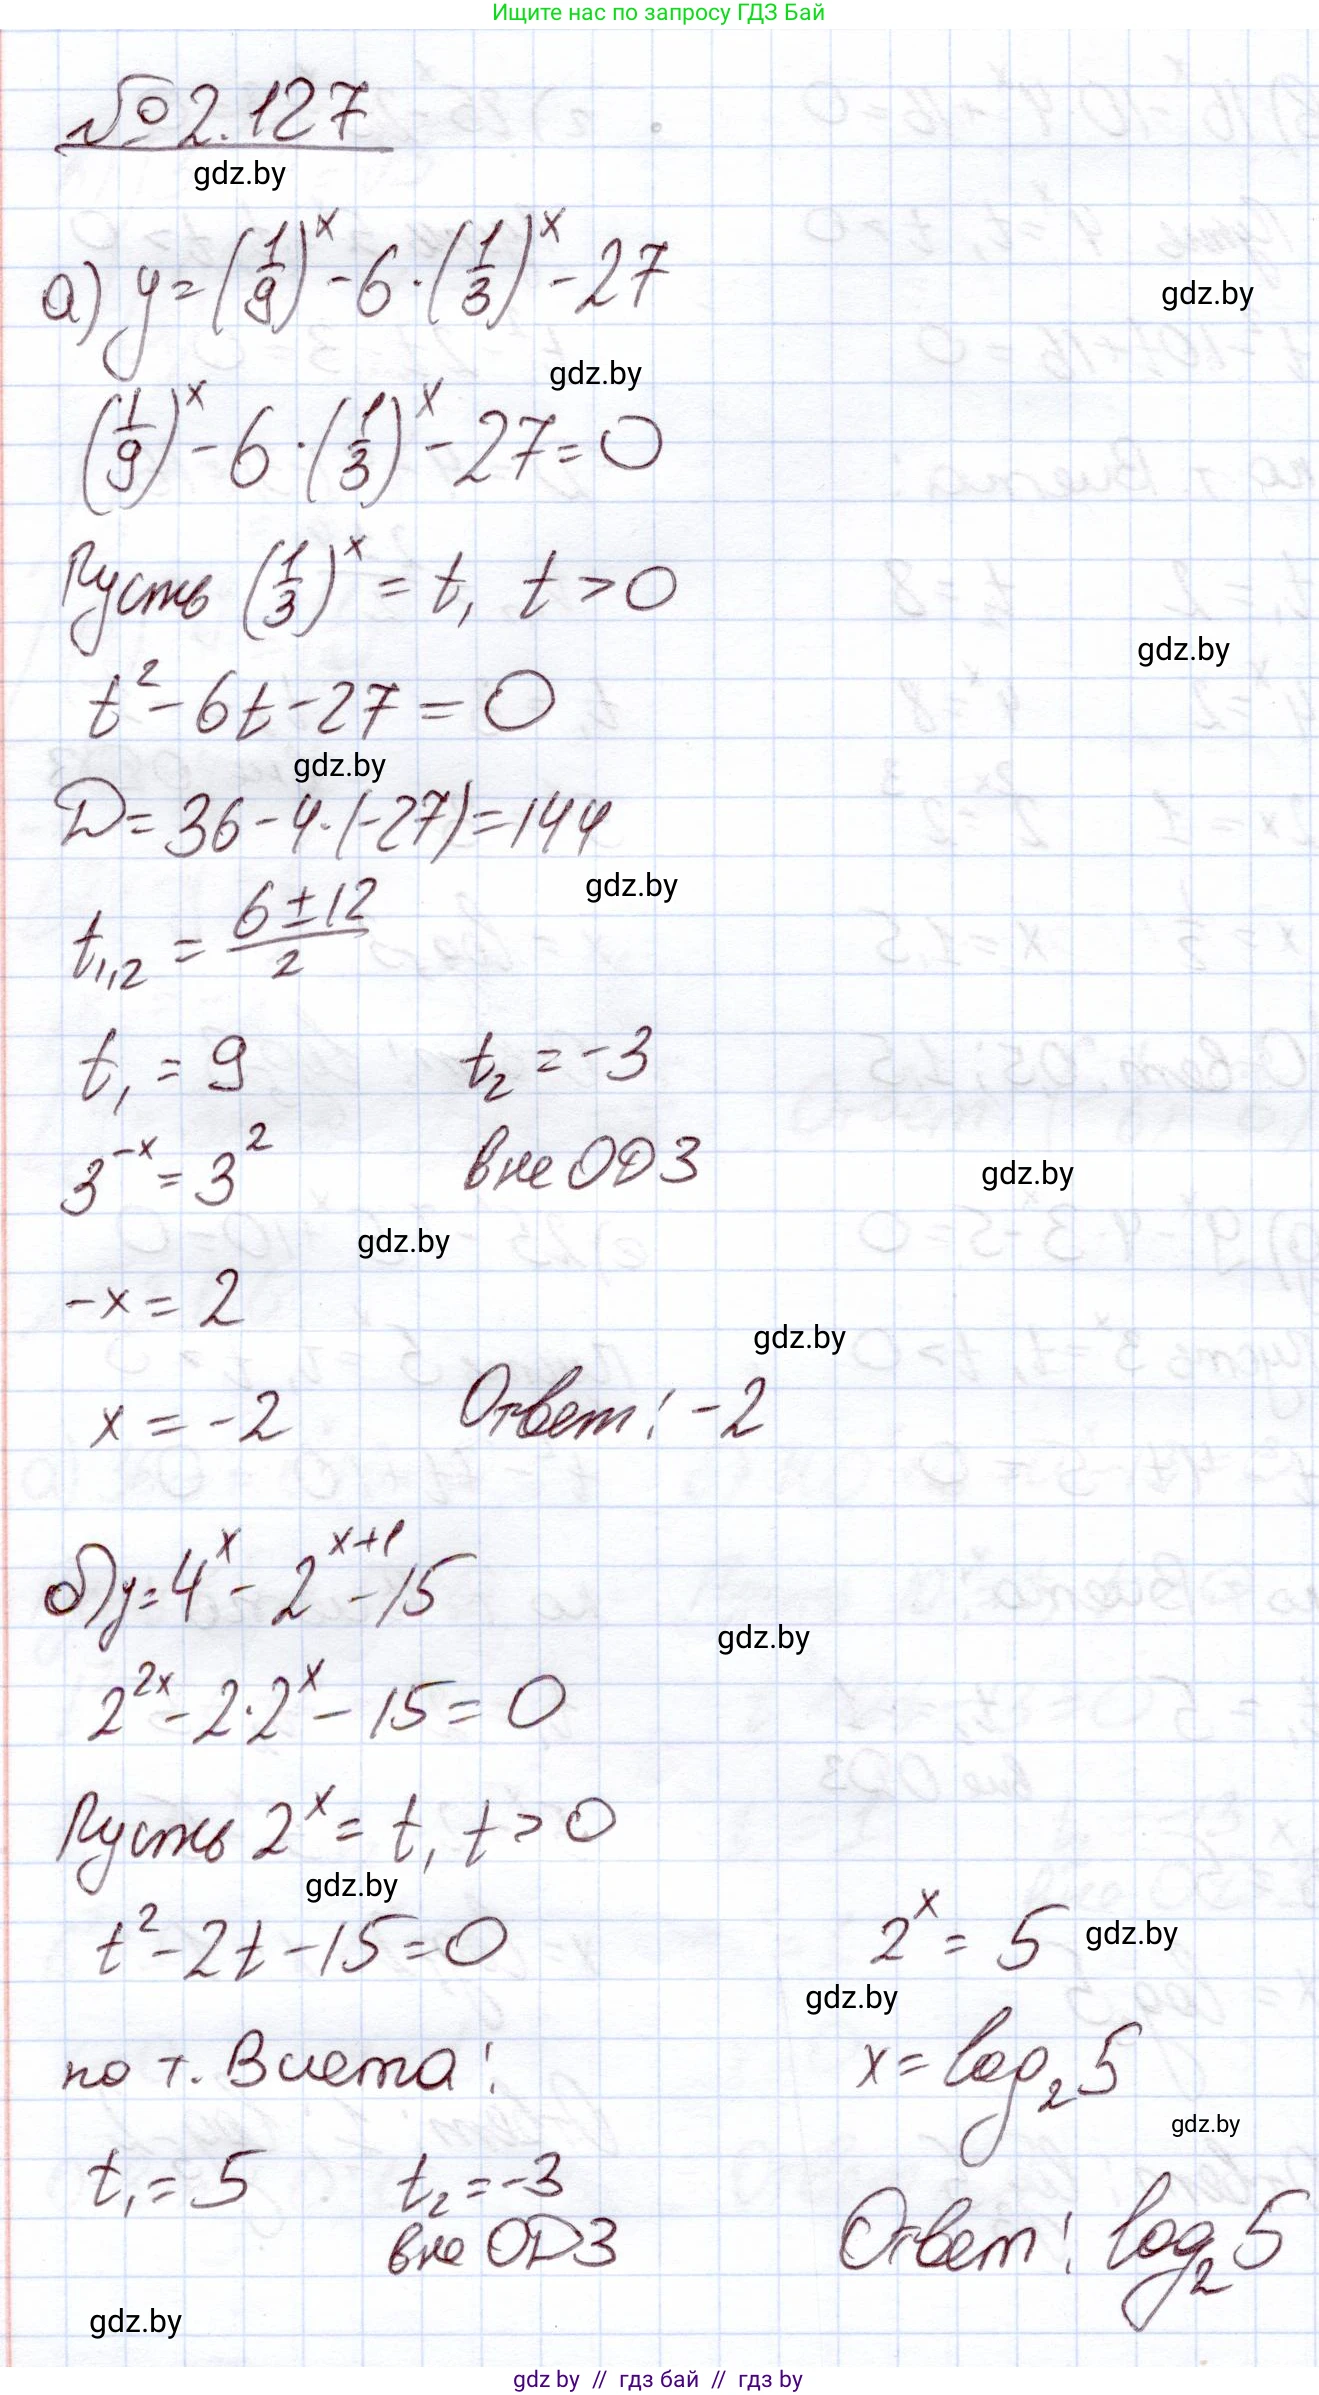 Ищите нас по запросу ГДЗ Бай
№ 2.127
gdz.by
а) y = (1/9)^x - 6 · (1/3)^x - 27
gdz.by
gdz.by
(1/9)^x - 6 · (1/3)^x - 27 = 0
Пусть (1/3)^x = t, t > 0
gdz.by
t² - 6t - 27 = 0
gdz.by
D = 36 - 4 · (-27) = 144
gdz.by
t₁,₂ = (6 ± 12)/2
t₁ = 9 t₂ = -3
3^-x = 3^2 вне ОДЗ
gdz.by
gdz.by
-x = 2
gdz.by
x = -2 Ответ: -2
б) y = 4^x - 2^x+1 - 15
gdz.by
2^2x - 2 · 2^x - 15 = 0
Пусть 2^x = t, t > 0
gdz.by
t² - 2t - 15 = 0
по т. Виета:
t₁ = 5 t₂ = -3
вне ОДЗ
2^x = 5
gdz.by
gdz.by
x = log₂5
gdz.by
Ответ: log₂5
gdz.by
gdz by // гдз бай // гдз by